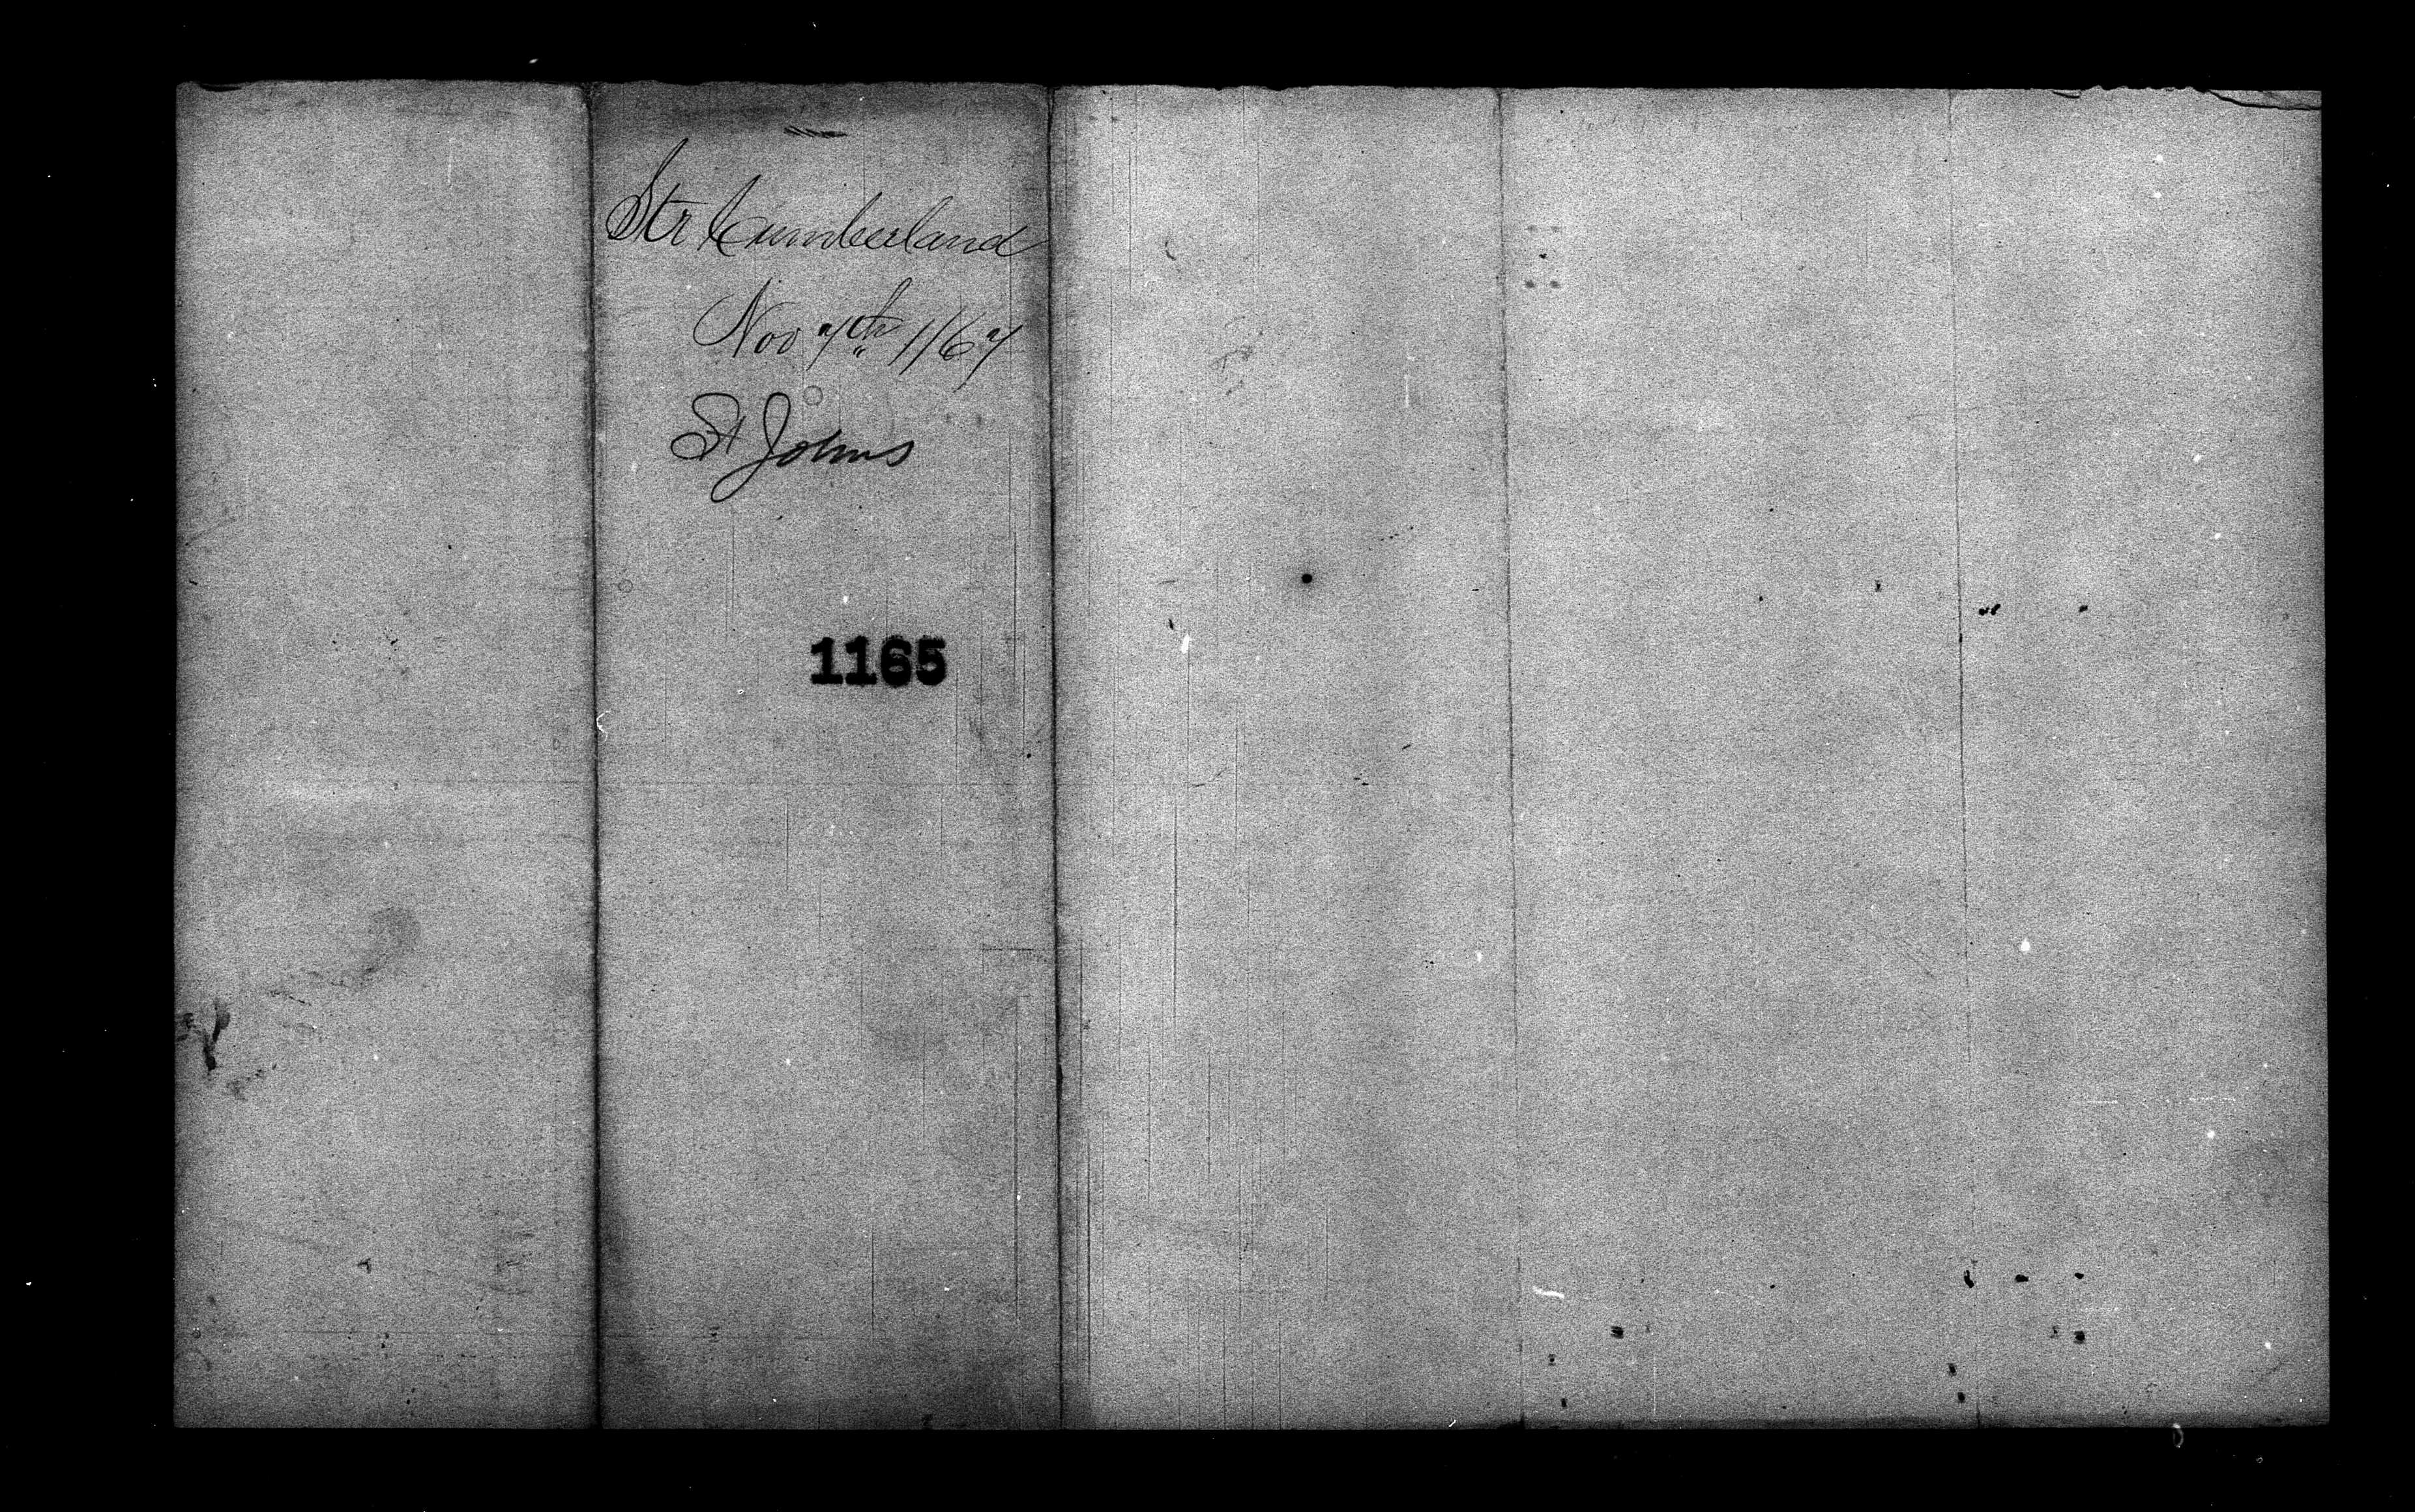 Str Cumberland
Nov 7th 1867
St Johns
1165